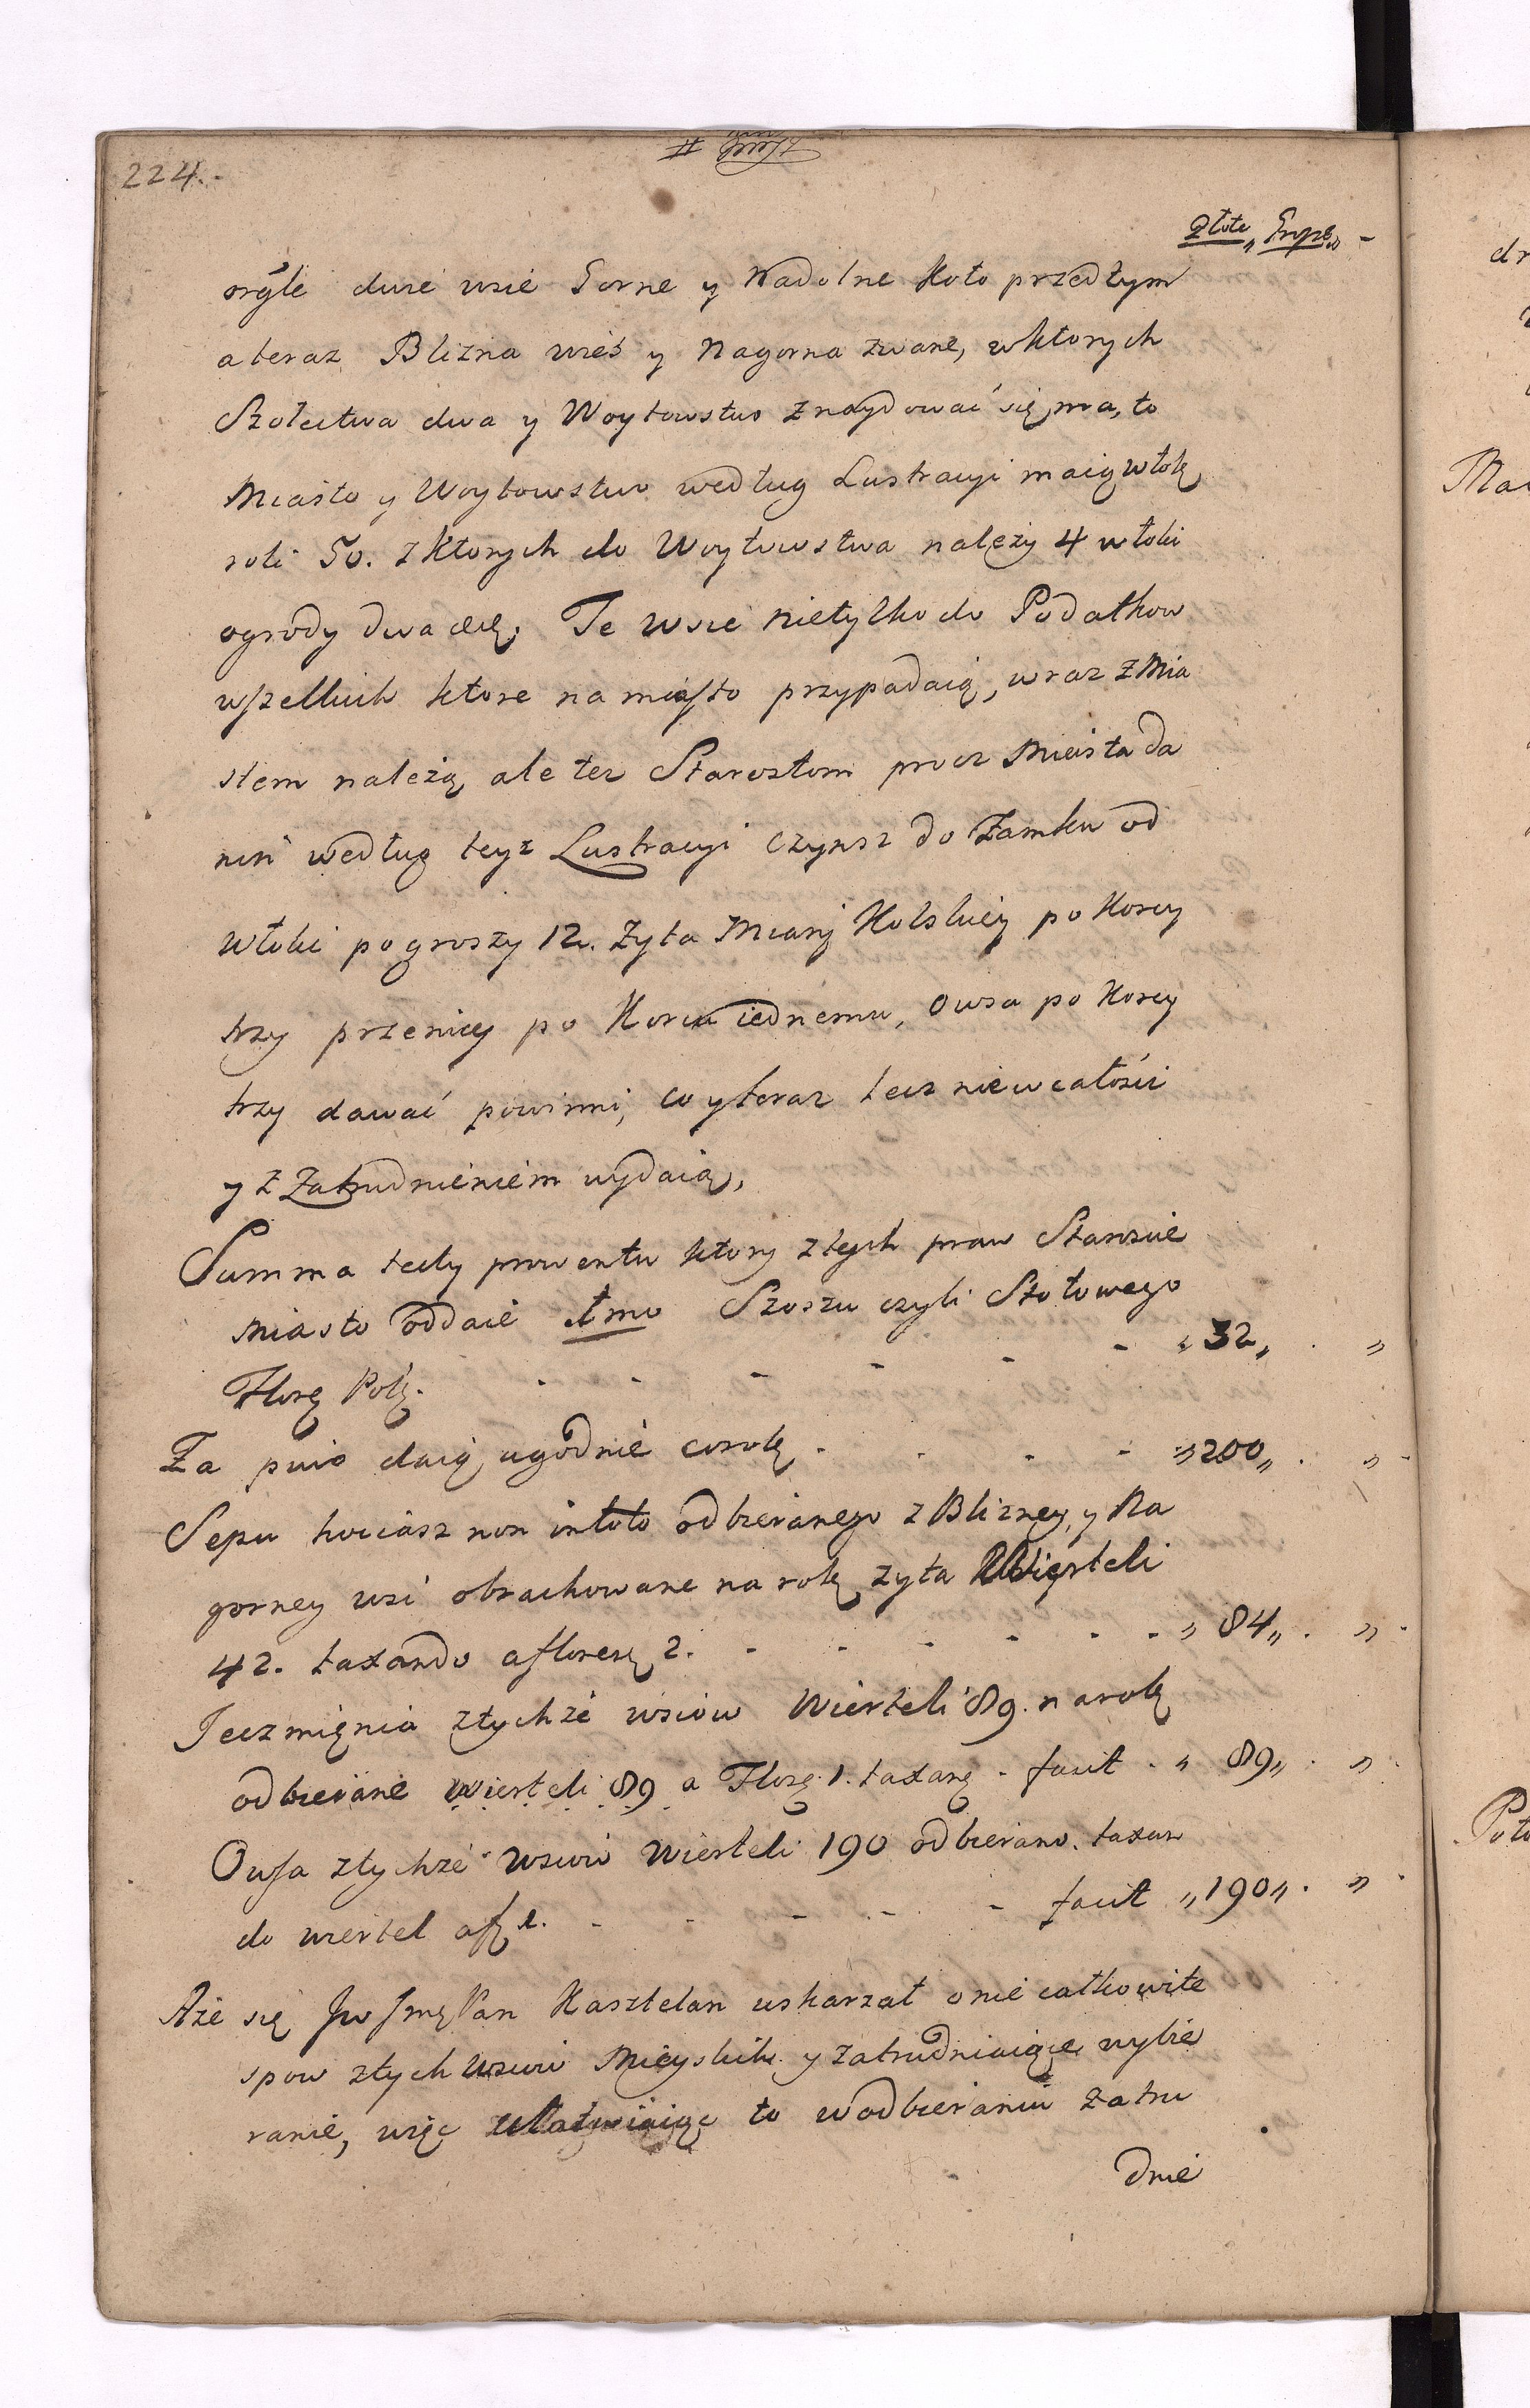 224.
Złote „ Grosz„
orgle dwie wsie Gorne y Nadolne Koło przedtym
a teraz Blizna wieś y Nagorna zwane, wktorych
Szołectwa dwa y Woytowstwo znaydować się ma, to
Miasto y Woytowstwo według Lustracyi maią włok
roli 50. z ktorych do Woytowstwa należy 4 włoki
ogrody dwa etc. Te wsie nietylko do Podatkow
wszelkich ktore na miasto przypadaią, wraz z Mia
stem należą ale też Starostom procz Miasta da
nin według teyż Lustracyi Czynsz do Zamku od
włoki po groszy 12. Zyta Miary Kolskiey po Korcy
trzy przenicy po Korcu iednemu, Owsa po Korcy
trzy dawać powinni, co y teraz lecz niewcałości
y z Zatrudnieniem wydaią,
Summa tedy prowentu ktory z tych praw Staroscie
Miasto oddaie 1mo Szoszu czyli Stołowego
Flor. Pol. - - - - - - „ 32„ . „
Za piwo daią ugodnie corok - . - - „ 200„ . „
Sepu hociasz non in toto odbieranego z Blizney, y Na
gorney wsi obrachowane na rok zyta Wierteli
42. taxando a floren. 2. - - - - - - „ 84„ . „
Jeczmienia z tychże wsiow Wierteli 89. na rok
odbierane wierteli 89 a Flor. 1. taxan. - facit . „ 89„ . „
Owsa z tychże wsiow Wierteli 190 odbierano. taxan
do wiertel a f. 1. - - - - - facit „ 190„ . „
Aże się Jw Jmę Pan Kasztelan uskarzał o nie całkowite
spow z tych wsiow Mieyskich y zatrudniaiące wybie
ranie, więc to w odbieraniu zatru
dnie